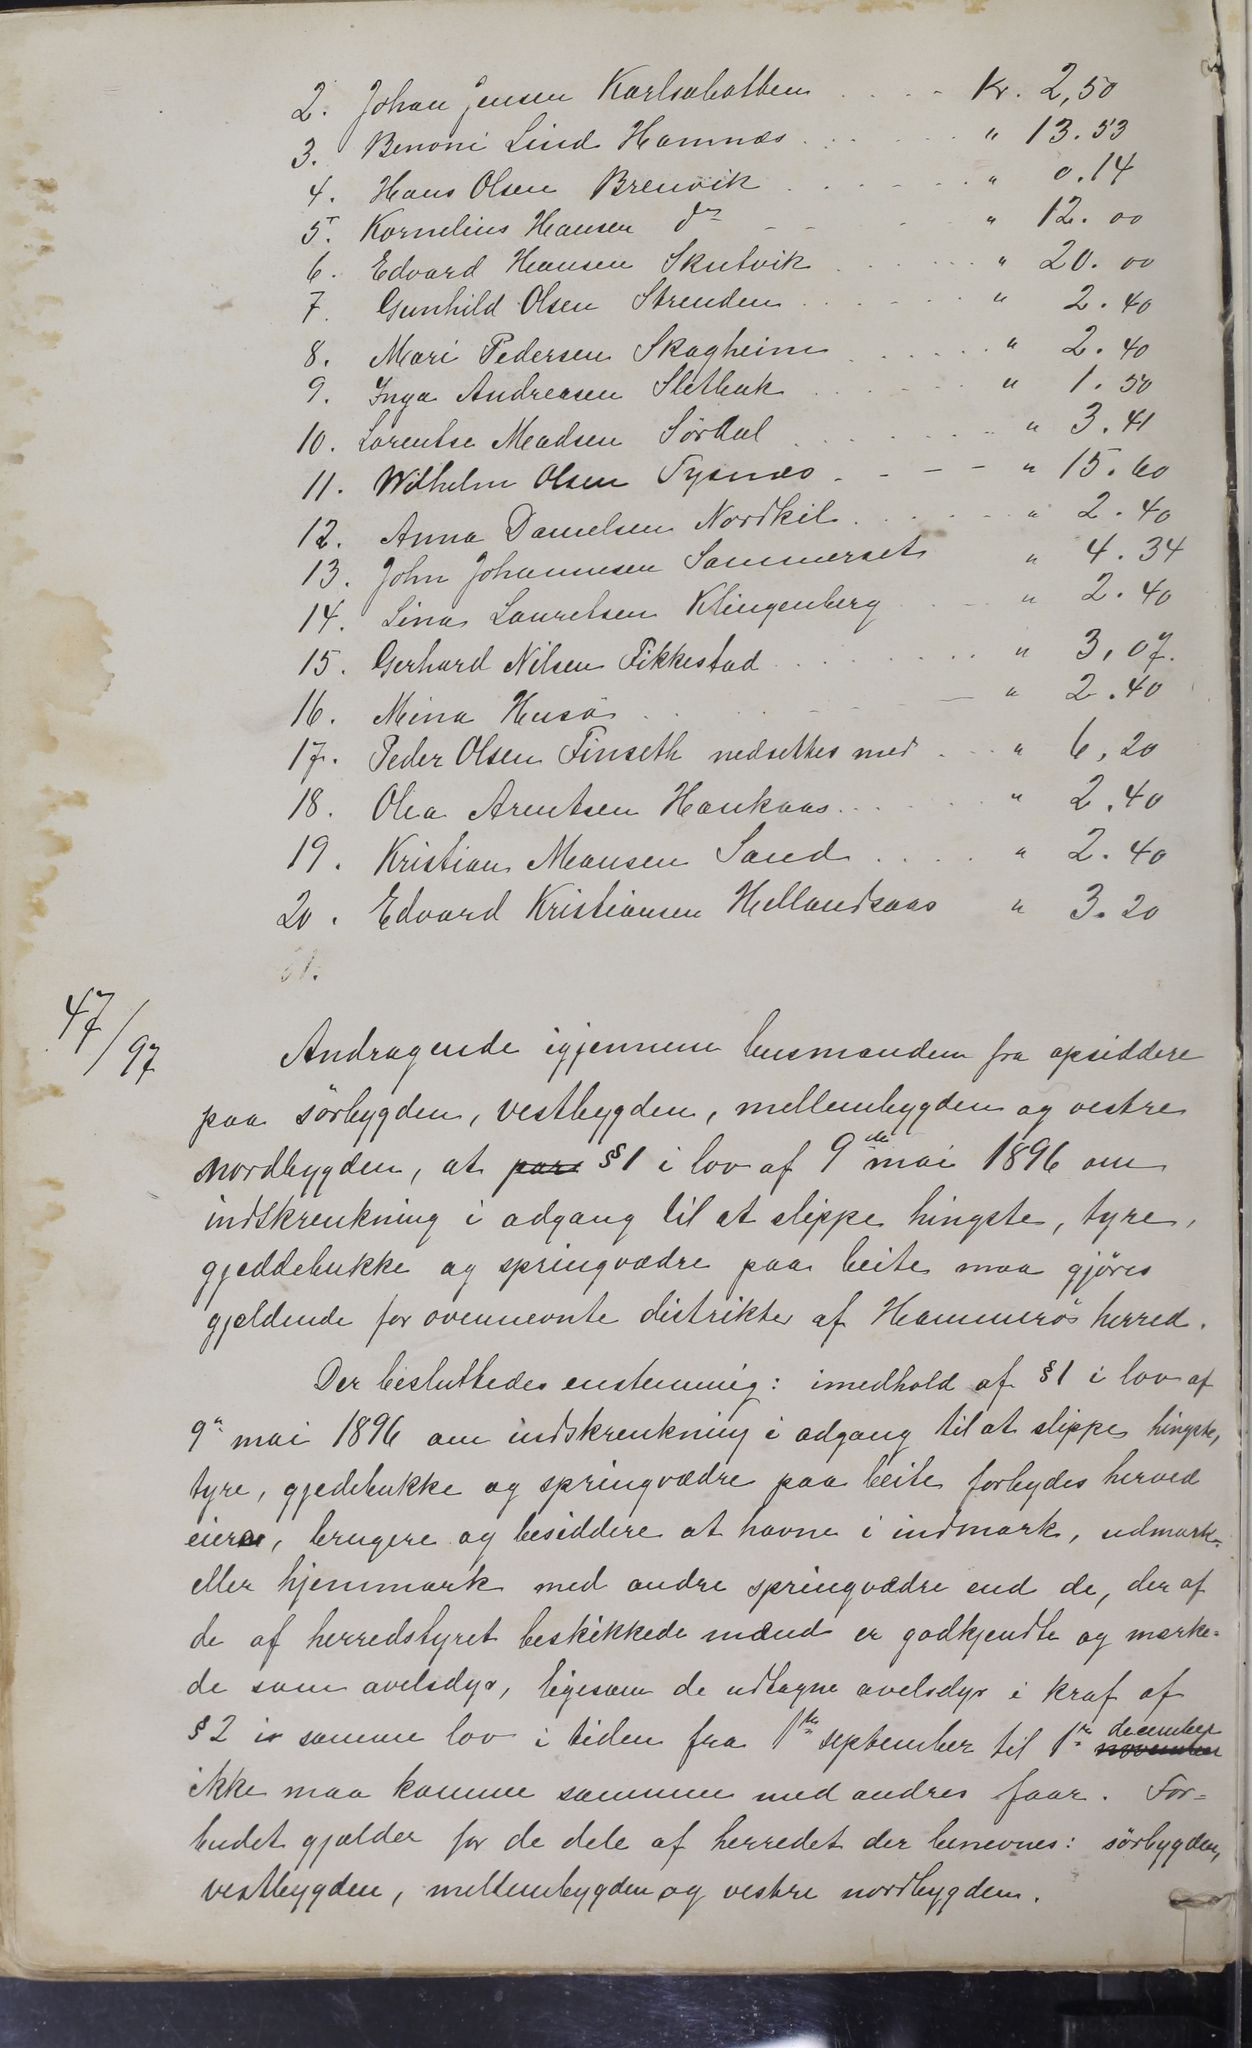 2. Johan Jensen Karlsabotten . . . . Kr. 2,50
3. Benoni Lind Hamnæs . . . . . . " 13.53
4. Hans Olsen Brenvik . . . . . . " 0.14
5. Kornelius Hansen do - - . . . " 12.00
6. Edvard Hansen Skutvik . . . . . . " 20.00
7. Gunhild Olsen Stranden . . . . . . " 2.40
8. Mari Pedersen Skagheim . . . . . . " 2.40
9. Inga Andreasen Sletbak . . . . . . " 1.50
10. Lorentse Madsen Sördal . . . . . . " 3.41
11. Wilhelm Olsen Tysnæs . - - - " 15.60
12. Anna Danielsen Nordkil . . . . . . " 2.40
13. John Johannesen Sommerset " 4.34
14. Lina Lauretsen Klingenberg . . . . " 2.40
15. Gerhard Nilsen Fikkestad . . . . . . " 3,07.
16. Mina Husö . . . . . . " 2.40
17. Peder Olsen Finseth nedsettes med . . . " 6,20
18. Olea Arntsen Haukaas . . . . . " 2.40
19. Kristian Monsen Sand . . . . " 2.40
20. Edvard Kristiansen Hellandsaas " 3.20
21.
47/97
Andragende igjennem lensmanden fra opsiddere
paa sörbygden, vestbygden, mellembygden og vestre
nordbygden, at par §1 i lov af 9de mai 1896 om
indskrenkning i adgang til at slippe hingste, tyre,
gjeddebukke og springvædre paa beite maa gjöres
gjældende for ovennevnte distrikter af Hammerös herred.
Der besluttedes enstemmig: imedhold af §1 i lov af
9" mai 1896 om indskrenkning i adgang til at slippe hingste,
tyre, gjedebukke og springvædre paa beite forbydes herved
eiere, brugere og besiddere at havne i indmark, udmark
eller hjemmark med andre springvædre end de, der af
de af herredstyret beskikkede mænd er godkjendte og mærke=
de som avelsdyr, ligesom de udtagne avelsdyr i kraf af
§2 i samme lov i tiden fra 1ste september til 1ste november december
ikke maa komme sammen med andres faar. For=
budet gjælder for de dele af herredet der benevnes: sörbygden,
vestbygden, mellembygden og vestre nordbygden.